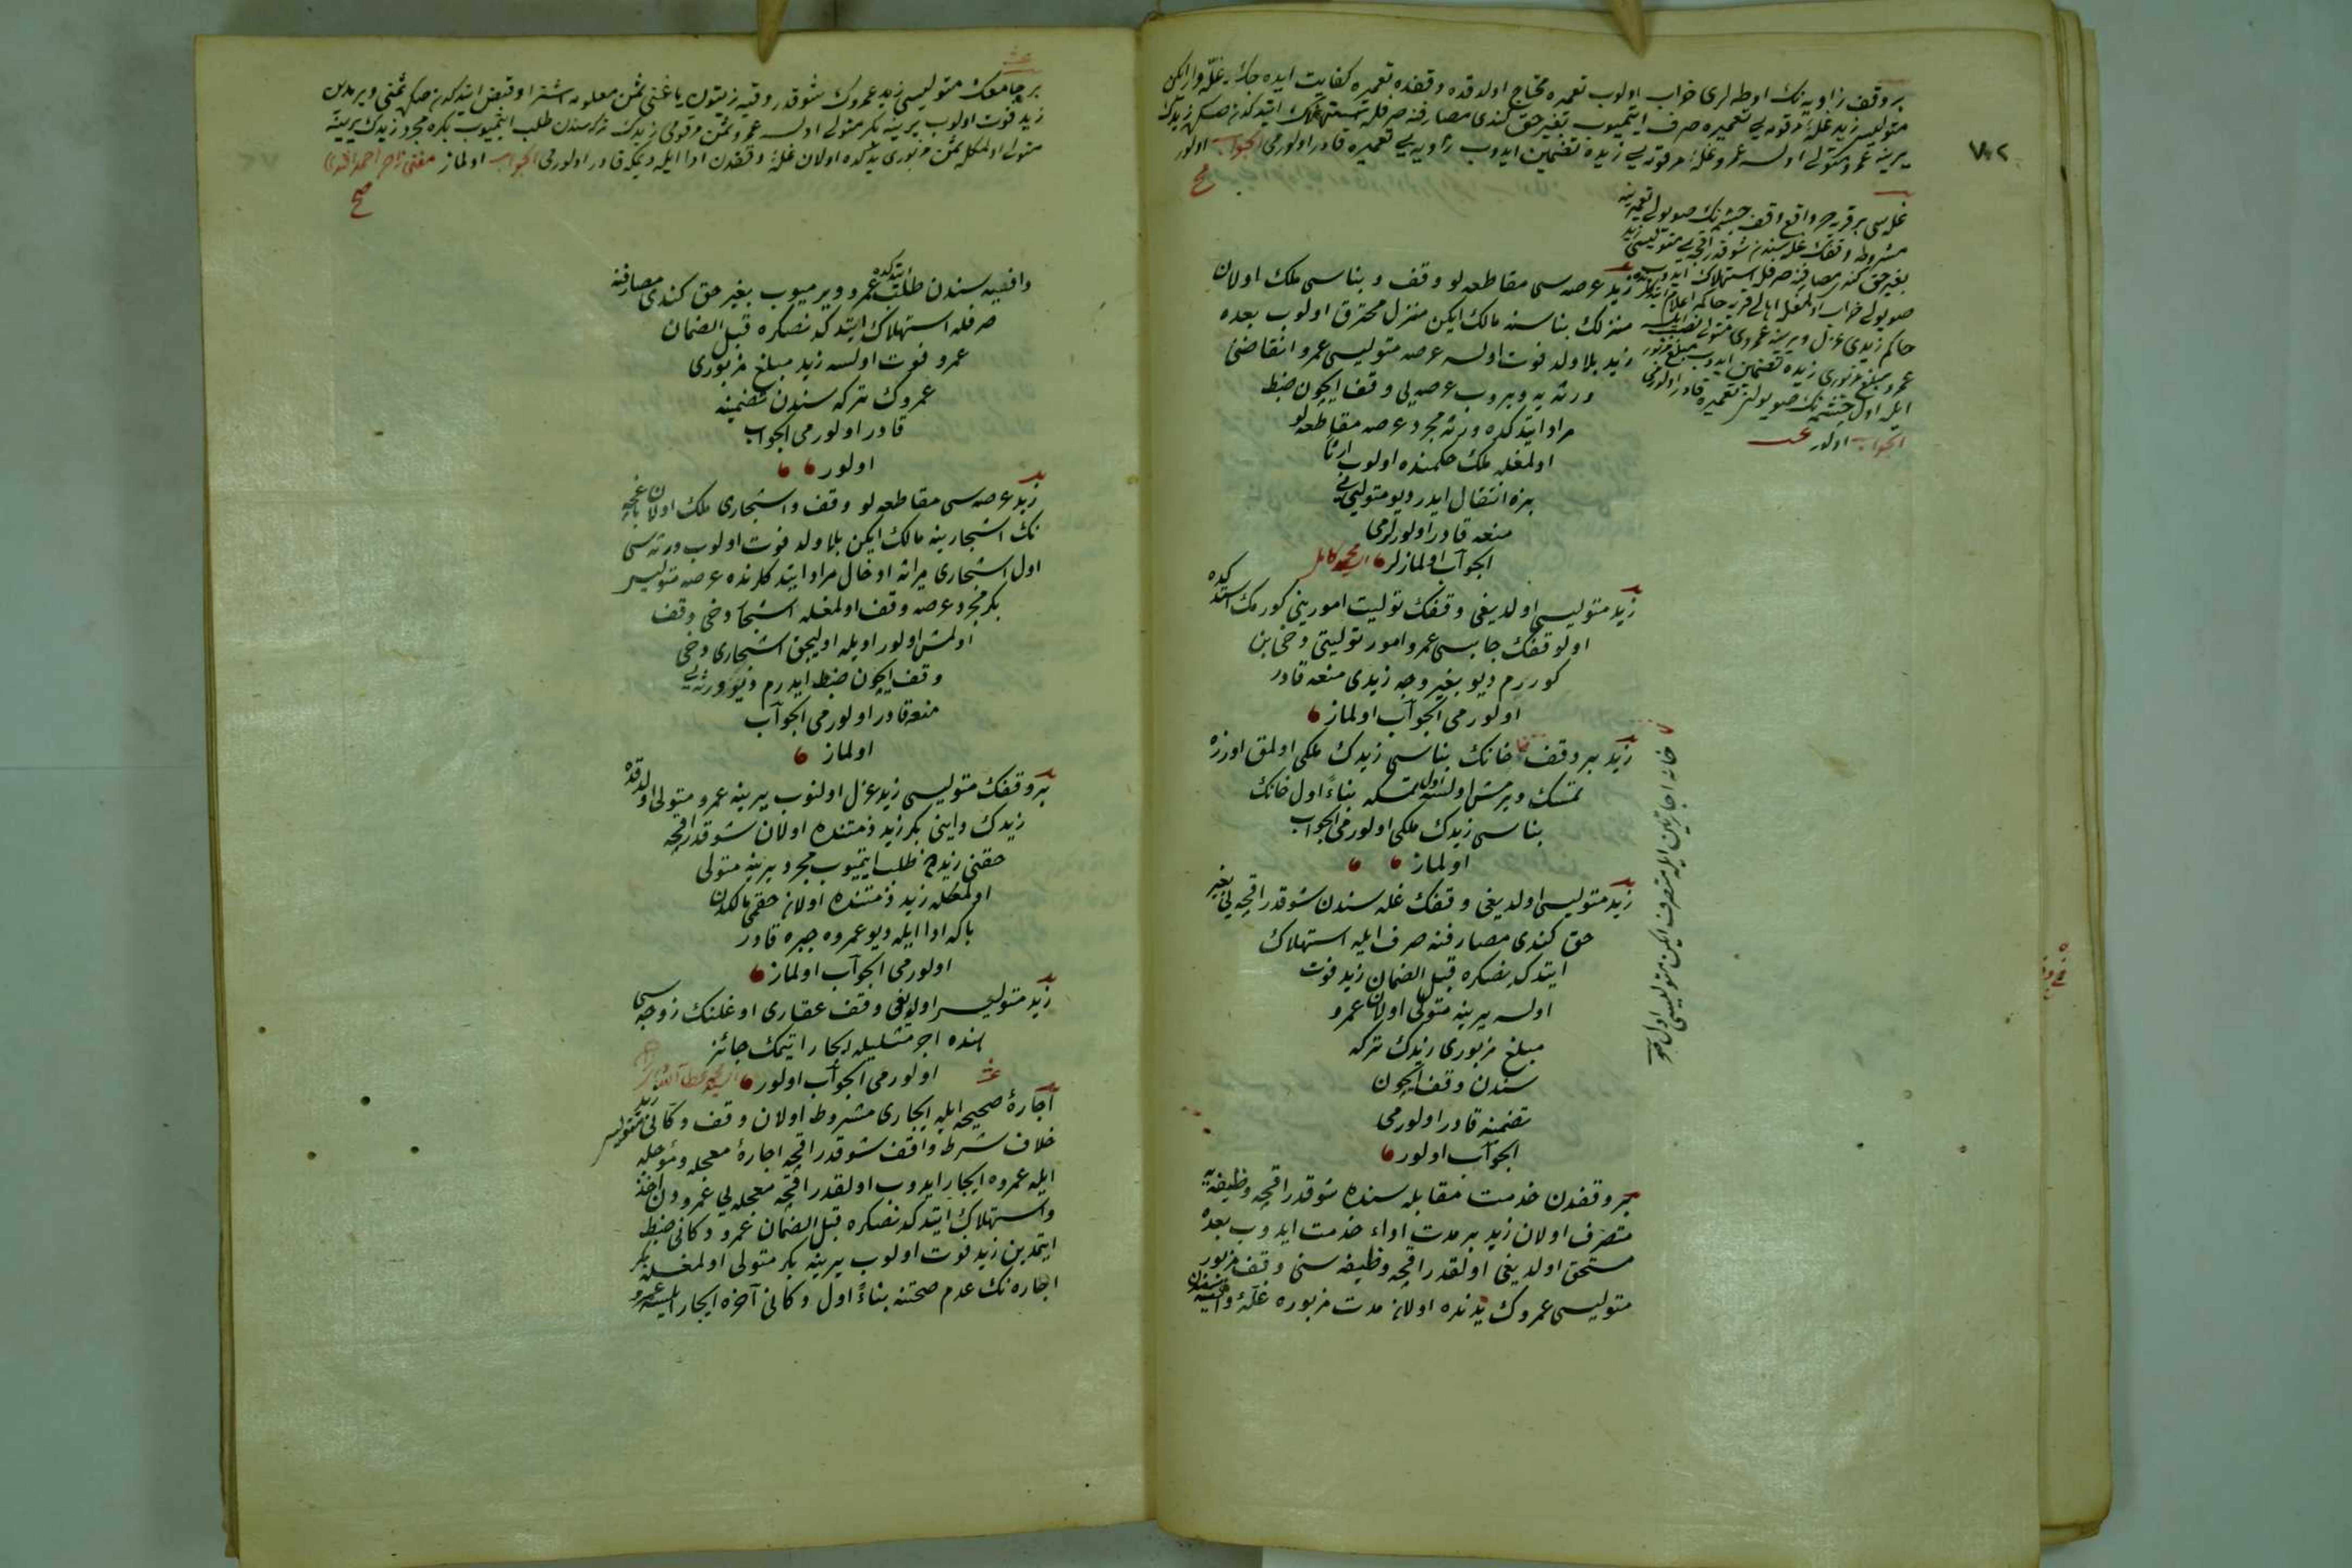 ٧٨٢
بر وقف زاويه نك اوطه لرى خراب اولوب تعميره محتاج اولدقده وقفده تعميره كفايت ايده جك غله وار ايكن
متوليسى زيد غلۀ مرقومه يى تعميره صرف ايتميوب بغير حق كندى مصارفنه صرفله استهلاك ايتدكدن صكره زيدك
يرينه عمرو متولى اولسه عمرو غلۀ مرقومه يى زيده تضمين ايدوب زاويه يى تعميره قادر اولورمى الجواب اولور
صح
غله سى بر قريه ده واقع وقف چشمه نك صو يولى تعميرينه
مشروطه وقفك غله سندن شوقدر اقچه يى متوليسى زيد
بغير حق كندى مصارفنه صرفله استهلاك ايدوب
صو يولى خراب اولمغله اهالى قريه حاكمه اعلام ايتدكلرنده
حاكم زيدى عزل ويرينه عمروى متولى نصب ايلسه
عمرو مبلغ مزبورى زيده تضمين ايدوب مبلغ مزبور
ايله اول چشمه نك صو يولنى تعميره قادر اولورمى
الجواب اولور
زيد عرصه سى مقاطعه لو وقف وبناسى ملك اولان
منزلك بناسنه مالك ايكن منزل محترق اولوب بعده
زيد بلا ولد فوت اولسه عرصه متوليسى عمرو انقاضنى
ورثه يه ويروب عرصه يى وقف ايچون ضبط
مراد ايتدكده ورثه مجرد عرصه مقاطعه لو
اولمغله ملك حكمنده اولوب ارثا
بزه انتقال ايدر ديو متوليئى
منعه قادر اولورلرمى
الجواب اولمازلر
زيد متوليسى اولديغى وقفك توليت امورينى كورمك استدكده
اول وقفك جابيسى عمرو امور توليتى دخى بن
كوررم ديو بغير وجه زيدى منعه قادر
اولورمى الجواب اولماز
زيد بر وقف خانك بناسى زيدك ملكى اولمق اوزره
تمسك ويرمش اولسه اول تمسكه بناءً اول خانك
بناسى زيدك ملكى اولورمى الجواب
اولماز
خانه اجارتين ايله متصرف ايكن متوليسى اول
زيد متوليسى اولديغى وقفك غله سندن شوقدر اقچه يى بغير
حق كندى مصارفنه صرف ايله استهلاك
ايتدكدنصكره قبل الضمان زيد فوت
اولسه يرينه متولى اولان عمرو
مبلغ مزبورى زيدك تركه
سندن وقف ايچون
تضمينه قادر اولورمى
الجواب اولور
بر وقفدن خدمت مقابله سنده شوقدر اقچه وظيفه يه
متصرف اولان زيد بر مدت اداء خدمت ايدوب بعده
مستحق اولديغى اولقدر اقچه وظيفه سنى وقف مزبور
متوليسى عمروك يدنده اولان مدت مزبوره غلۀ
بر جامعك متوليسى زيد عمروك شوقدر وقيه زيتون ياغنى ثمن معلومه اشترا وقبض ايتدكدن صكره ثمنى ويرمدن
زيد فوت اولوب يرينه بكر متولى اولسه عمرو ثمن مرقومى زيدك تركه سندن طلب ايتميوب بكره مجرد زيدك يرينه
متولى اولمغله ثمن مزبورى يدكده اولان غلۀ وقفدن ادا ايله ديمكه قادر اولورمى الجواب اولماز
صح
وافيه سندن طلب ايتدكده عمرو ويرميوب بغير حق كندى مصارفنه
صرفله استهلاك ايتدكدنصكره قبل الضمان
عمرو فوت اولسه زيد مبلغ مزبورى
عمروك تركه سندن تضمينه
قادر اولورمى الجواب
اولور
زيد عرصه سى مقاطعه لو وقف واشجارى ملك اولان باغچه
نك اشجارينه مالك ايكن بلا ولد فوت اولوب ورثه سى
اول اشجارى ميراثه ادخال مراد ايتدكلرنده عرصه متوليسى
بكر مجرد عرصه وقف اولمغله اشجار دخى وقف
اولمش اولور اويله اوليجق اشجارى دخى
وقف ايچون ضبط ايدرم ديو ورثه يى
منعه قادر اولورمى الجواب
اولماز
بر وقفك متوليسى زيد عزل اولنوب يرينه عمرو متولى اولدقده
زيدك داينى بكر زيد ذمتنده اولان شوقدر اقچه
حقنى زيددن طلب ايتميوب مجرد يرينه متولى
اولمغله زيد ذمتنده اولان حقمى مالكدن
بكا ادا ايله ديو عمروه جبره قادر
اولورمى الجواب اولماز
زيد متوليسى اولديغى وقف عقارى اوغلنك زوجه سى
هنده اجر مثليله ايجار ايتمك جائز
اولورمى الجواب اولور
اجارۀ صحيحه ايله ايجارى مشروط اولان وقف دكانى متوليسى زيد
خلاف شرط واقف شوقدر اقچه اجارۀ معجله ومؤجله
ايله عمروه ايجار ايدوب اولقدر اقچه معجله يى عمرودن اخذ
واستهلاك ايتدكدنصكره قبل الضمان عمرو دكانى ضبط
ايتمدين زيد فوت اولوب يرينه بكر متولى اولمغله بكر
اجاره نك عدم صحتنه بناءً اول دكانى آخره ايجار ايلسه عمرو